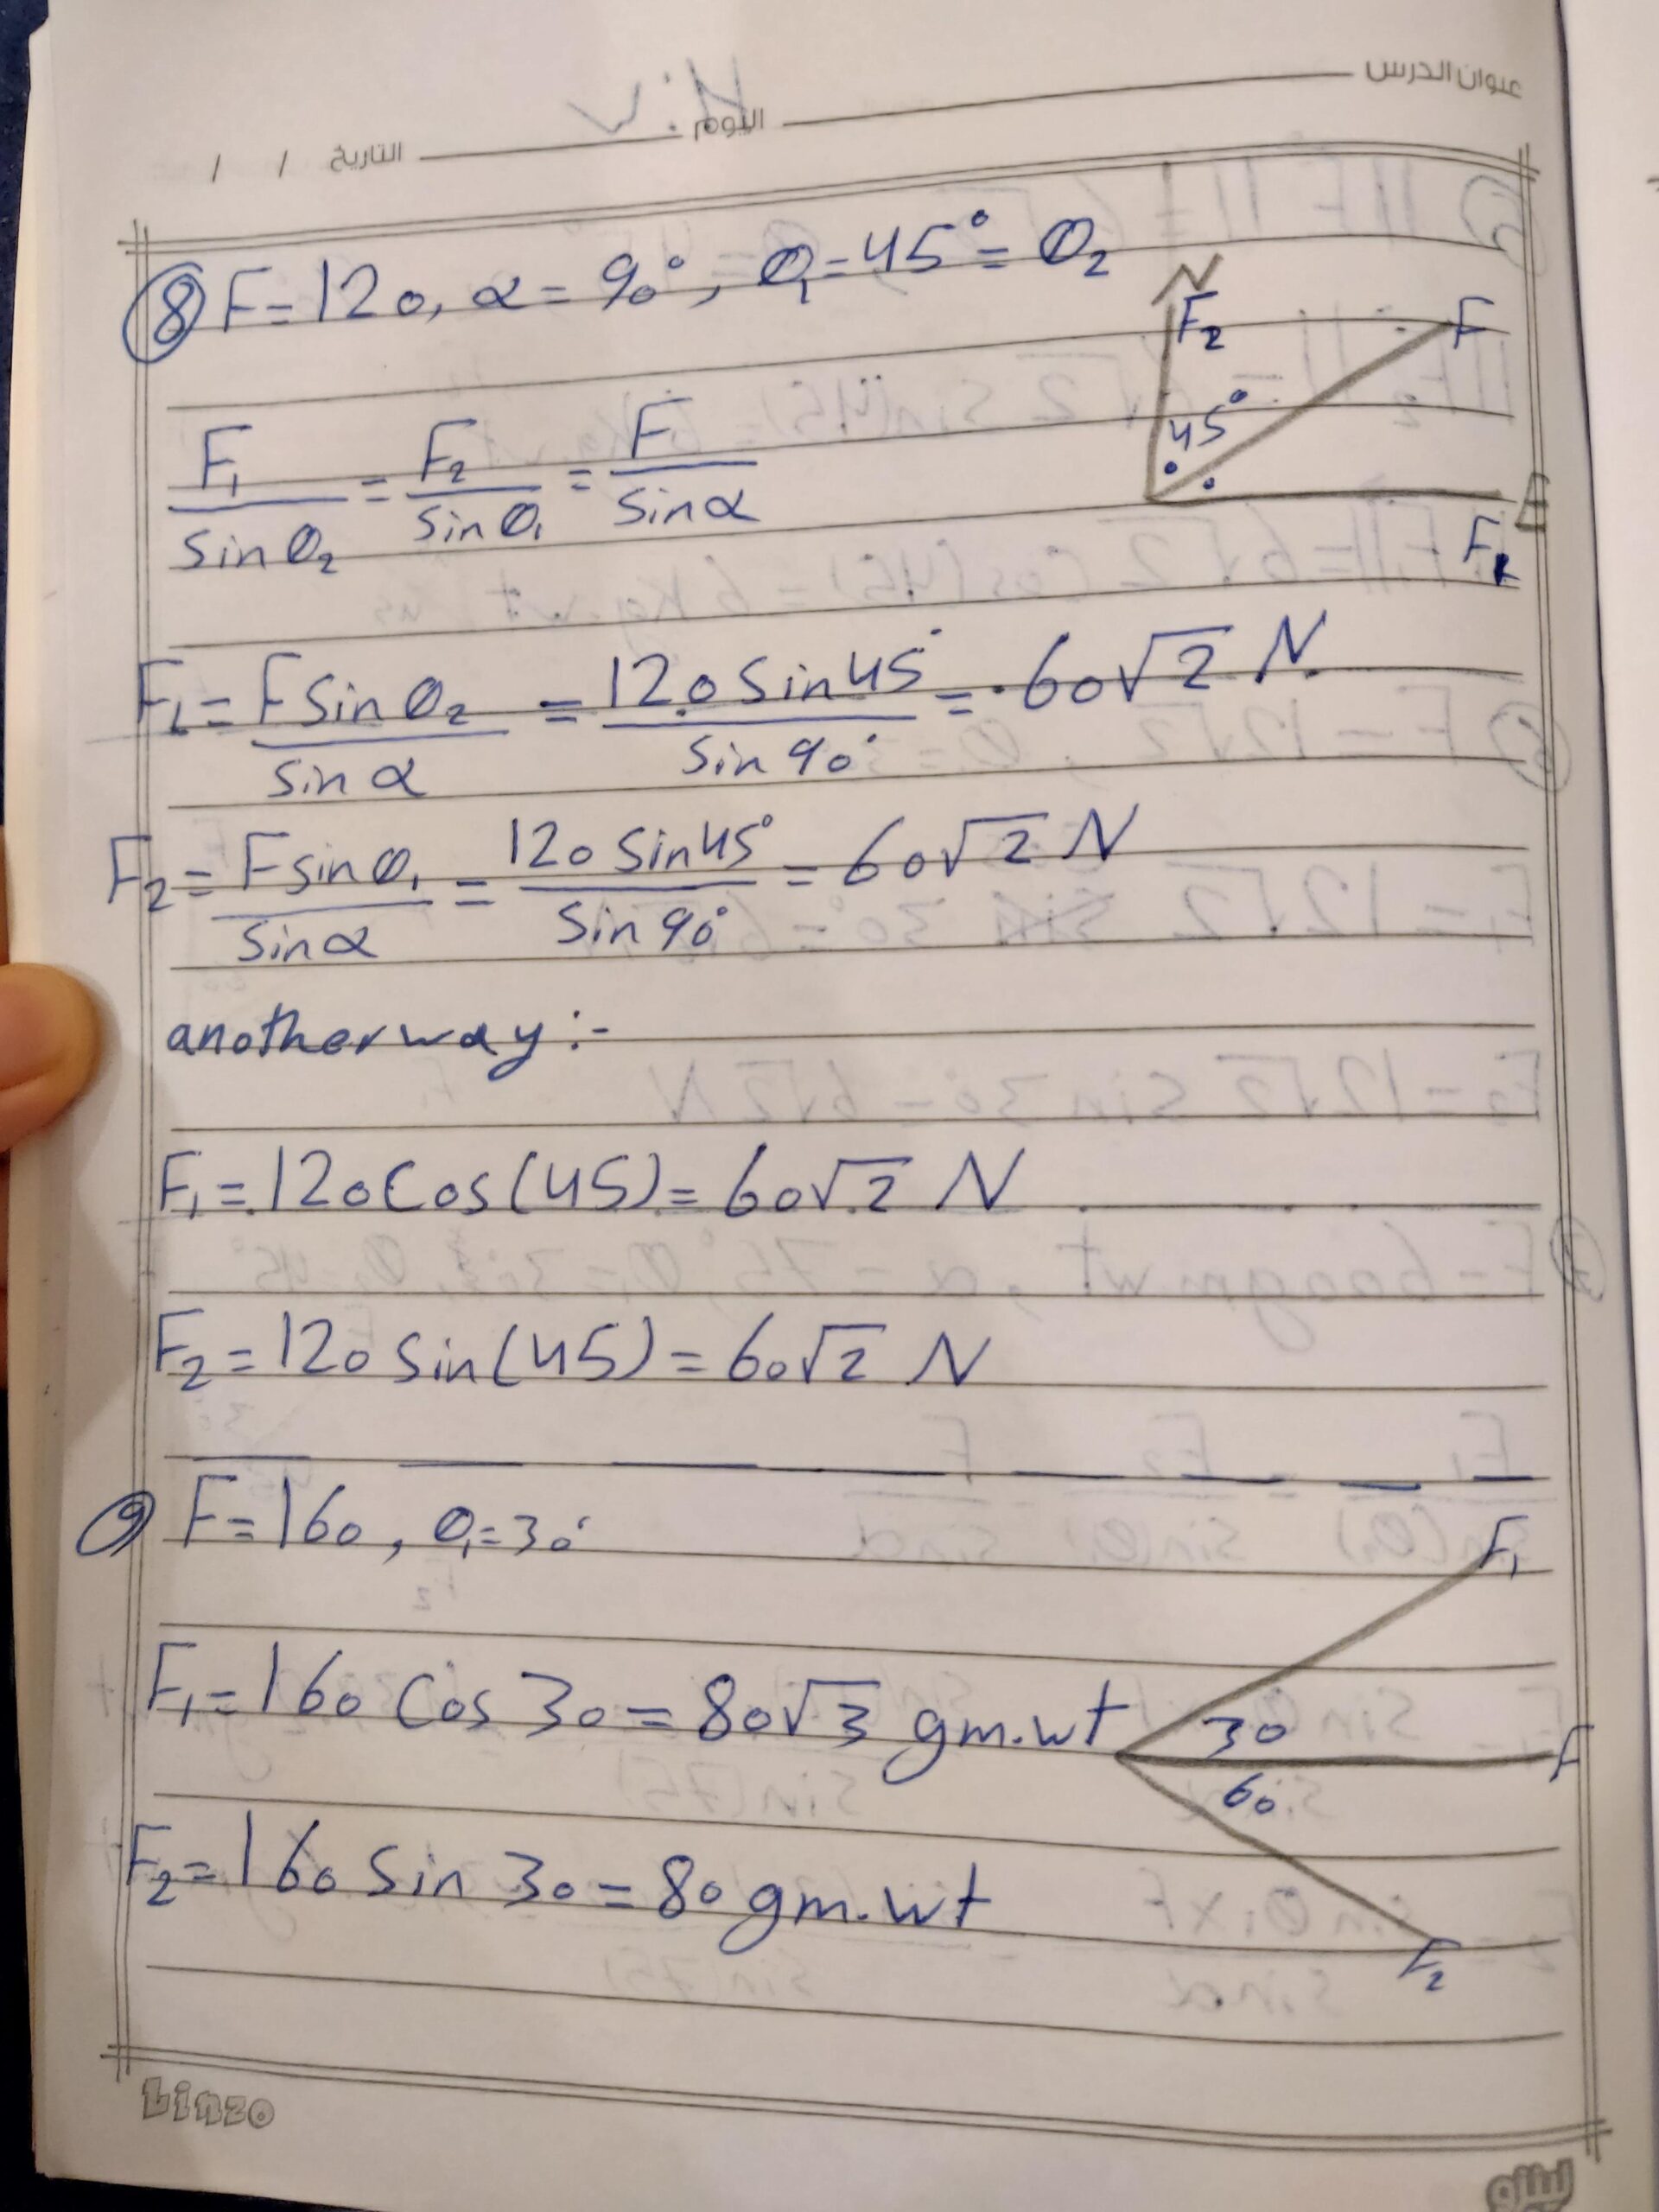 عنوان الدرس
اليوم
التاريخ / /
⑧ F=120, α = 90°, θ₁=45°= θ₂
N
F₂
F
45°
E
F₁
F₁/sin θ₂ = F₂/sin θ₁ = F/sin α
F₁ = F sin θ₂/sin α = 120 sin 45°/sin 90° = 60√2 N
F₂ = F sin θ₁/sin α = 120 sin 45°/sin 90° = 60√2 N
another way :-
F₁ = 120 Cos (45) = 60√2 N
F₂ = 120 sin (45) = 60√2 N
⑨ F=160, θ₁=30°
F₁
F₁ = 160 Cos 30 = 80√3 gm.wt
30
F
60
F₂ = 160 Sin 30 = 80 gm.wt
F₂
Linzo
لينزو